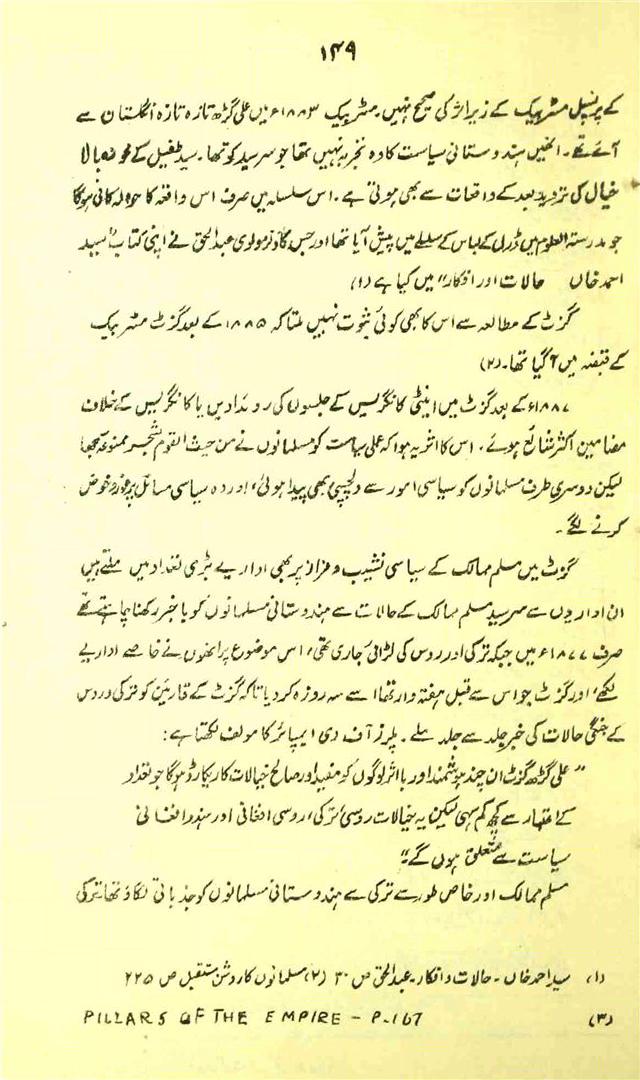 ۱۴۹
کے پرنسپل مسٹر بیک کے زیر اثر کی صحیح نہیں۔ مسٹر بیک ۱۸۸۳ء میں علی گڑھ تازہ تازہ انگلستان سے
آئے تھے۔ انھیں ہندوستانی سیاست کا وہ تجربہ نہیں تھا جو سرسید کو تھا۔ سید طفیل کے محولہ بالا
خیال کی تردید بعد کے واقعات سے بھی ہوتی ہے۔ اس سلسلہ میں صرف اس واقعہ کا حوالہ کافی ہوگا
جو مدرستہ العلوم میں ٹرکی کے لباس کے سلسلے میں پیش آیا تھا اور جس کا ذکر مولوی عبدالحق نے اپنی کتاب "سید
احمد خاں حالات اور افکار" میں کیا ہے (۱)
گزٹ کے مطالعہ سے اس کا بھی کوئی ثبوت نہیں ملتا کہ ۱۸۸۵ کے بعد گزٹ مسٹر بیک
کے قبضہ میں آگیا تھا۔ (۲)
۱۸۸۷ء کے بعد گزٹ میں اینٹی کانگریس کے جلسوں کی رودادیں یا کانگریس کے خلاف
مضامین اکثر شائع ہوئے۔ اس کا اثر یہ ہوا کہ عملی سیاست کو مسلمانوں نے من حیث القوم شجر ممنوعہ سمجھا
لیکن دوسری طرف مسلمانوں کو سیاسی امور سے دلچسپی بھی پیدا ہوئی، اور وہ سیاسی مسائل پر غور و خوض
کرنے لگے۔
گزٹ میں مسلم ممالک کے سیاسی نشیب و فراز پر بھی اداریے بڑی تعداد میں ملتے ہیں
ان اداریوں سے سرسید مسلم ممالک کے حالات سے ہندوستانی مسلمانوں کو باخبر رکھنا چاہتے تھے
صرف ۱۸۷۷ء میں جبکہ ترکی اور روس کی لڑائی جاری تھی، اس موضوع پر انھوں نے خاصے اداریے
لکھے، اور گزٹ جو اس سے قبل ہفتہ وار تھا اسے سہ روزہ کردیا تاکہ گزٹ کے قارئین کو ترکی و روس
کے جنگی حالات کی خبر جلد سے جلد ملے۔ پلرز آف دی ایمپائر کا مولف لکھتا ہے:
"علی گڑھ گزٹ ان چند ہوشمند اور با اثر لوگوں کو مفید اور صالح خیالات کا ریکارڈ ہوگا جو تعداد
کے اعتبار سے کچھ کم سہی لیکن یہ خیالات روسی ترکی، روسی افغانی اور ہندو افغانی
سیاست سے متعلق ہوں گے"
مسلم ممالک اور خاص طور سے ترکی سے ہندوستانی مسلمانوں کو جذباتی لگاؤ تھا ترکی
(۱) سید احمد خاں۔ حالات و افکار۔ عبدالحق ص ۳۰ (۲) مسلمانوں کا روشن مستقبل ص ۲۲۵
(۳) PILLARS OF THE EMPIRE – P.167